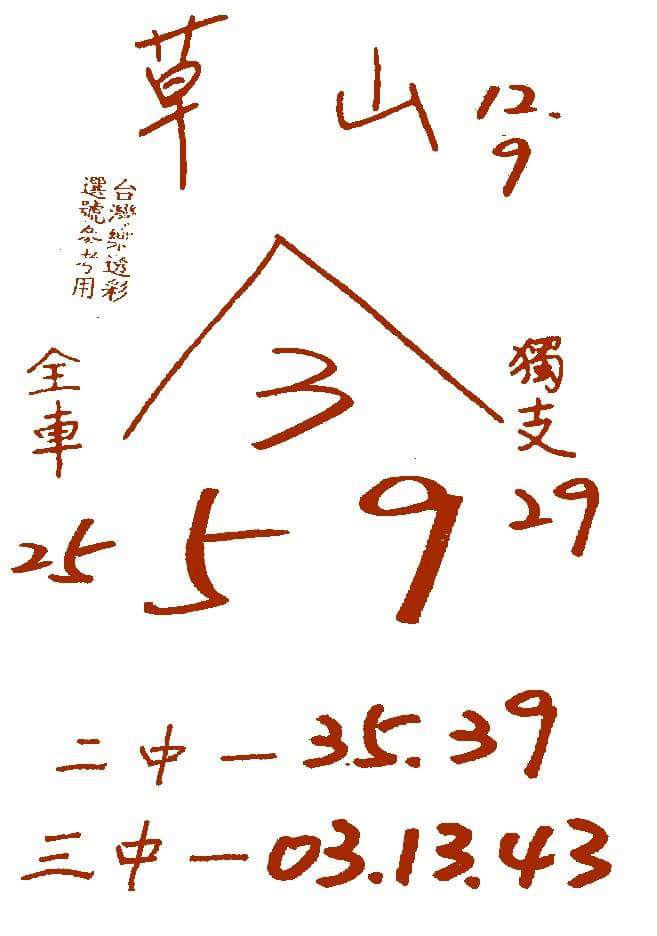 草山 12.9
台灣樂透彩
選號參考用
3
全車
獨支
25
5 9
29
二中一35.39
三中一03.13.43